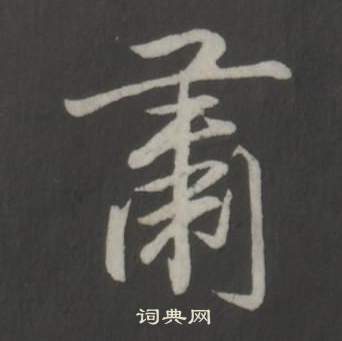 肅
词典网